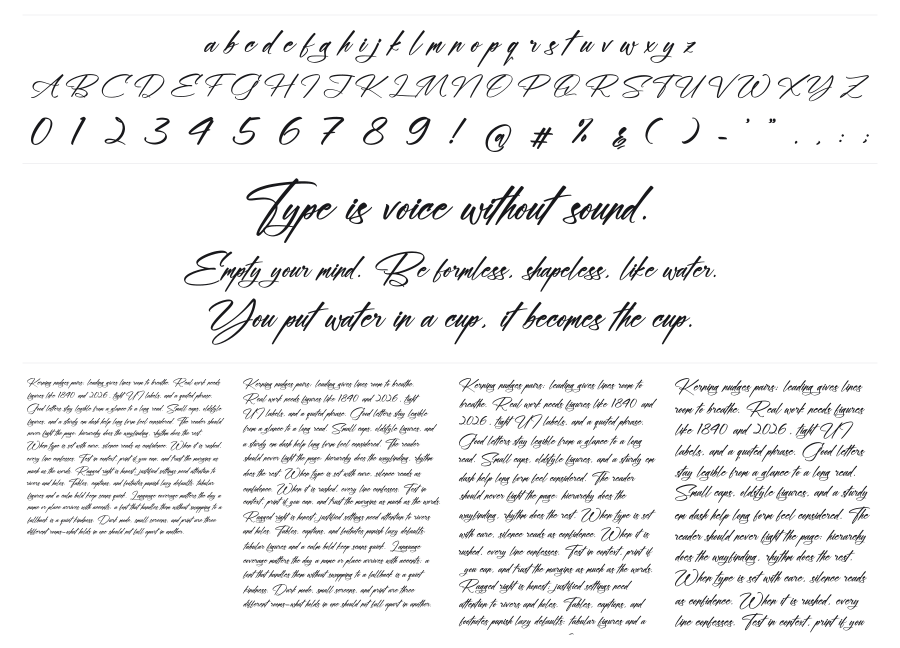 a b c d e f g h i j k l m n o p q r s t u v w x y z
A B C D E F G H I J K L M N O P Q R S T U V W X Y Z
0 1 2 3 4 5 6 7 8 9 ! @ # % & ( ) - ' " . , : ;
Type is voice without sound.
Empty your mind. Be formless, shapeless, like water.
You put water in a cup, it becomes the cup.
Kerning nudges pairs; leading gives lines room to breathe. Real work needs
figures like 1840 and 2026, tight UI labels, and a quoted phrase.
Good letters stay legible from a glance to a long read. Small caps, oldstyle
figures, and a sturdy em dash help long form feel considered. The reader should
never fight the page: hierarchy does the wayfinding, rhythm does the rest.
When type is set with care, silence reads as confidence. When it is rushed,
every line confesses. Test in context, print if you can, and trust the margins as
much as the words. Ragged right is honest; justified settings need attention to
rivers and holes. Tables, captions, and footnotes punish lazy defaults: tabular
figures and a calm bold keep scans quick. Language coverage matters the day a
name or place arrives with accents; a font that handles them without swapping to a
fallback is a quiet kindness. Dark mode, small screens, and print are three
different rooms—what holds in one should not fall apart in another.
Kerning nudges pairs; leading gives lines room to breathe.
Real work needs figures like 1840 and 2026, tight
UI labels, and a quoted phrase. Good letters stay legible
from a glance to a long read. Small caps, oldstyle figures, and
a sturdy em dash help long form feel considered. The reader
should never fight the page: hierarchy does the wayfinding, rhythm
does the rest. When type is set with care, silence reads as
confidence. When it is rushed, every line confesses. Test in
context, print if you can, and trust the margins as much as the words.
Ragged right is honest; justified settings need attention to rivers
and holes. Tables, captions, and footnotes punish lazy defaults:
tabular figures and a calm bold keep scans quick. Language
coverage matters the day a name or place arrives with accents; a
font that handles them without swapping to a fallback is a quiet
kindness. Dark mode, small screens, and print are three
different rooms—what holds in one should not fall apart in another.
Kerning nudges pairs; leading gives lines room to
breathe. Real work needs figures like 1840 and
2026, tight UI labels, and a quoted phrase.
Good letters stay legible from a glance to a long
read. Small caps, oldstyle figures, and a sturdy em
dash help long form feel considered. The reader
should never fight the page: hierarchy does the
wayfinding, rhythm does the rest. When type is set
with care, silence reads as confidence. When it is
rushed, every line confesses. Test in context, print if
you can, and trust the margins as much as the words.
Ragged right is honest; justified settings need
attention to rivers and holes. Tables, captions, and
footnotes punish lazy defaults: tabular figures and a
Kerning nudges pairs; leading gives lines
room to breathe. Real work needs figures
like 1840 and 2026, tight UI
labels, and a quoted phrase. Good letters
stay legible from a glance to a long read.
Small caps, oldstyle figures, and a sturdy
em dash help long form feel considered. The
reader should never fight the page: hierarchy
does the wayfinding, rhythm does the rest.
When type is set with care, silence reads
as confidence. When it is rushed, every
line confesses. Test in context, print if you